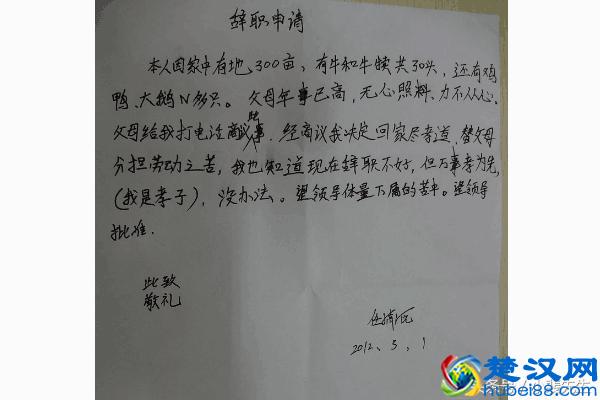 辞职申请
本人因家中有地300亩、有牛和牛犊共30头,还有鸡
鸭、大鹅N多只。父母年事已高,无心照料、力不从心。
父母给我打电话商议此事,经商议我决定回家尽孝道,替父母
分担劳动之苦,我也知道现在辞职不好,但万事孝为先,
(我是孝子),没办法。望领导体量下属的苦衷。望领导
批准.
此致
敬礼
2012、3、1
楚汉网
hubei88.com